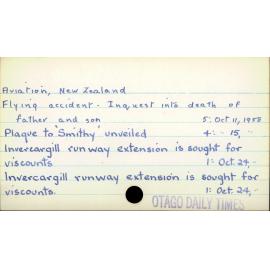 Aviation, New Zealand
Flying accident. Inquest into death of
father and son 5: Oct 11, 1958
Plaque to 'Smithy' unveiled 4: - 15, -
Invercargill runway extension is sought for
viscounts 1: Oct. 24, -
Invercargill runway extension is sought for
viscounts. 1: Oct. 24, -
OTAGO DAILY TIMES